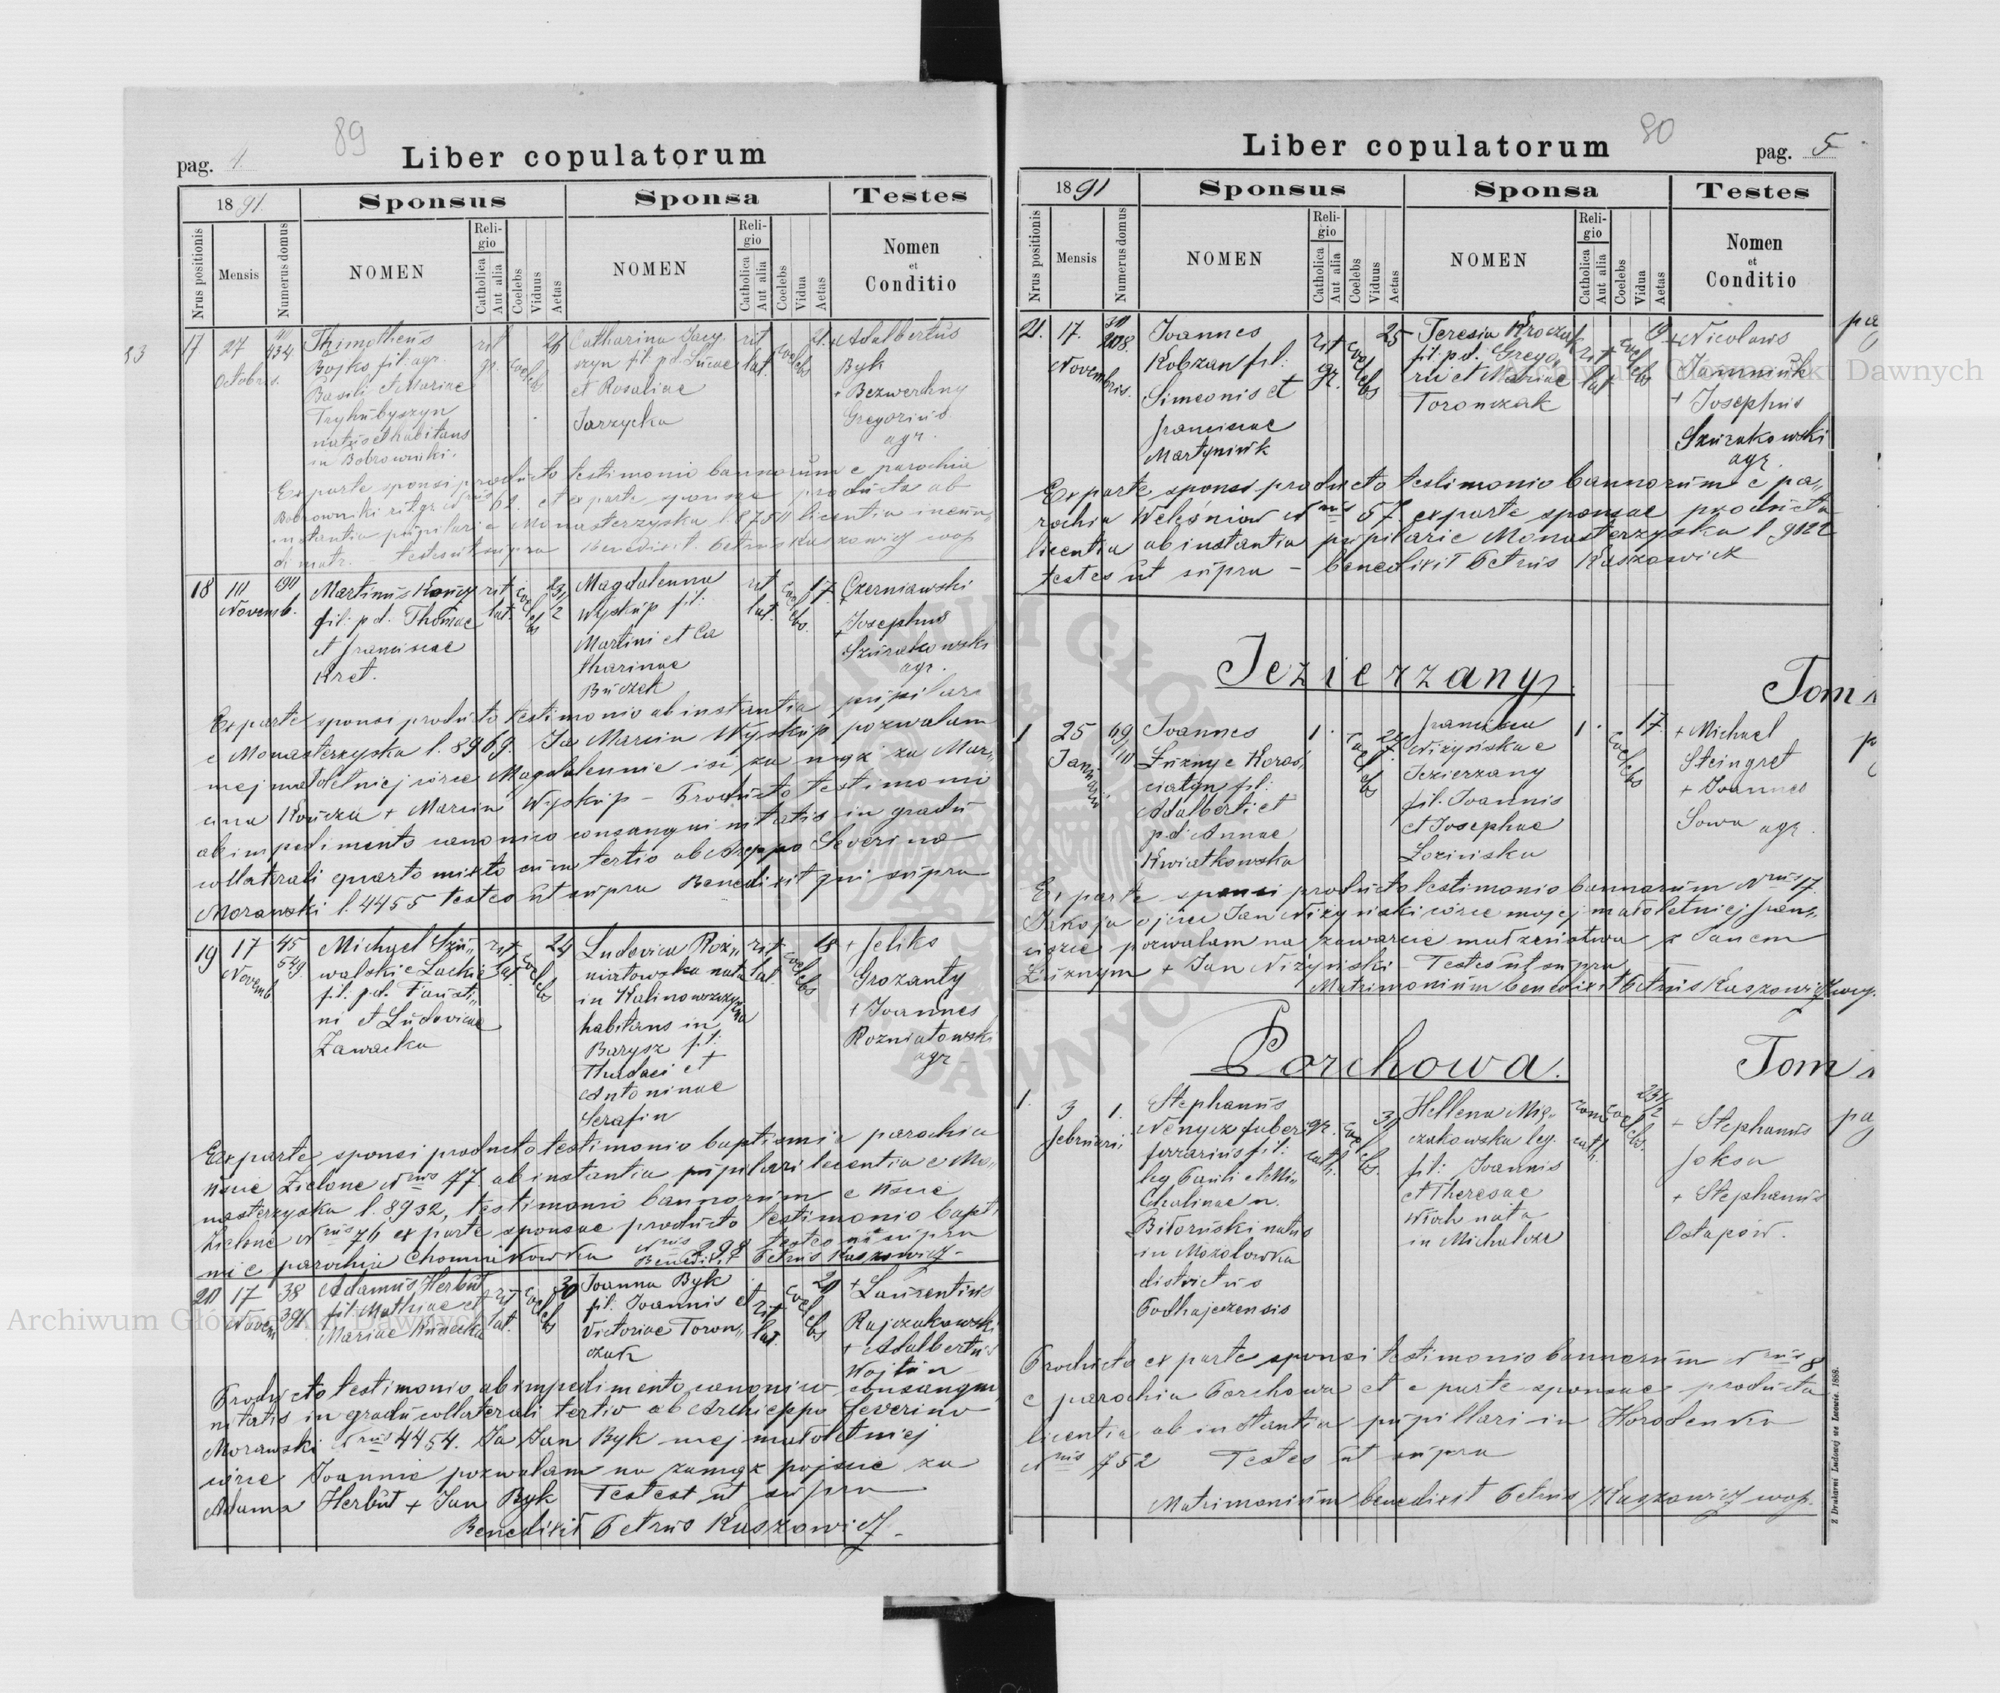 89
pag. 4.
Liber copulatorum
1891.
Sponsus
Sponsa
Testes
Nrus positionis
Mensis
Numerus domus
NOMEN
Religio
Catholica
Aut alia
Coelebs
Viduus
Aetas
NOMEN
Religio
Catholica
Aut alia
Coelebs
Vidua
Aetas
Nomen
et
Conditio
17
27
Octobris
434
Thimotheus
Bojko fil. agr.
Basili et Mariae
Tryhubyszyn
natus et habitans
in Bobrowniki.
rit
gr.
coelebs
Catharina Jarzy-
fil. p.d. Lucae
et Rosaliae
Jarzycka
rit
lat.
coelebs
21.
+ Adalbertus
Byk
+ Bezwerchny
Gregorius
agr.
Ex parte sponsi producto testimonio bannorum e parochia
Bobrowniki rit. gr. Nrus 62. et ex parte sponsae producta ab
instantia pupilari e Monasterzyska l. 8751 licentia ineun-
di matr. testes ut supra Benedixit Petrus Kuszowicz
18
Novemb.
Martinus
fil. p.d. Thomae
et Franciscae
Kret.
rit
lat.
coelebs
23 1/2
Magdalenna
Wyskup fil.
Martini et Ca
tharinae
Buczek
rit
lat.
coelebs
17.
Czerniawski
+
Josephus
+
Szurakowski
agr.
Ex parte sponsi producto testimonio ab instantia pupilari
e Monasterzyska l. 8969. Ja Marcin Wyskup pozwalam
mej małoletniej córce Magdalennie iść za mąż za Mar-
cina + Marcin Wyskup - Producto testimonio
ab impedimento canonico consanguinitatis in gradu
collaterali quarto mixto cum tertio ab Archieppo Severino
Morawski l. 4455 testes ut supra Benedixit qui supra
19
17
Novemb
45
549.
Michael Szu-
walski e Lackie
fil. p.d. Fausti-
ni et Ludovicae
Zawacka
rit
lat.
coelebs
24
Ludovica Roz-
niatowska nata
in
habitans in
Barysz fil.
Thadaei et
Antoninae
Serafin
rit
lat.
coelebs
18
+ Feliks
Grozanty
+ Joannes
Rozniatowski
agr
Ex parte sponsi producto testimonio baptismi e parochia
Zielone Nrus 77. ab instantia pupilari licentia e Mo-
nasterzyska l. 8932, testimonio bannorum e
Zielone Nrus 76 ex parte sponsae producto testimonio bapti
mi e parochia Chomiakowka Nrus 298 testes ut supra
Benedixit Petrus Kuszowicz -
20
17
Novem
38
391
Adamus Herbut
fil. Mathiae et
Mariae Kunecka
rit
lat.
coelebs
30
Joanna Byk
fil. Joannis et
Victoriae Toron-
czak
rit
lat.
coelebs
20
+ Laurentius
Rajczakowski
+ Adalbertus
Wojtun
Producto testimonio ab impedimento canonico consangui
nitatis in gradu collaterali tertio ab Archieppo Severino
Morawski Nrus 4454. Ja Jan Byk mej małoletniej
córce Joannie pozwalam na zamąż pójście za
Adama Herbut + Jan Byk Testes ut supra
Benedixit Petrus Kuszowicz -
90
Liber copulatorum
pag. 5
1891
Sponsus
Sponsa
Testes
Nrus positionis
Mensis
Numerus domus
NOMEN
Religio
Catholica
Aut alia
Coelebs
Viduus
Aetas
NOMEN
Religio
Catholica
Aut alia
Coelebs
Vidua
Aetas
Nomen
et
Conditio
21.
17.
Novembris.
208.
Joannes
Kobzan fil.
Simeonis et
Franciscae
Martyniuk
rit
gr.
coelebs
25
Teresia Kroczak
fil. p.d. Grego-
rii et Mariae
Toronczak
rit
lat
coelebs
19
+ Nicolaus
+ Josephus
Szurakowski
agr.
Ex parte sponsi producto testimonio bannorum e pa-
rochia Weleśniów Nrus 57. ex parte sponsae producta
licentia ab instantia pupilarie Monasterzyska l 9122
testes ut supra - benedixit Petrus Kuszowicz
Jezierzany
Tom
1
25
Januarii
69
Joannes
Luzny e Koroś-
ciatyn fil.
Adalberti et
p.d. Annae
Kwiatkowska
1.
coelebs
Francisca
Niżyńska e
Jezierzany
fil. Joannis
et Josephae
Lozińska
1.
coelebs
17.
+ Michael
Steingret
+ Joannes
Sowa agr.
Ex parte sponsi producto testimonio bannorum Nrus 17.
Jako ja ojciec Jan Niżyński córce mojej małoletniej Fran-
ciszce pozwalam na zawarcie małżeństwa z Janem
Luznym + Jan Niżyński - Testes ut supra
Matrimonium benedixit Petrus Kuszowicz
Porchowa.
Tom
1.
3
Februarii
1.
Stephanus
Nenycz faber
ferrarius fil.
leg. Pauli et Mi-
chalinae n.
Bitoruski natus
in Mozolowka
districtus
Podhajcensis
gr.
cath.
coelebs.
31
Hellena Mię-
czakowska leg.
fil. Joannis
et Theresae
Wloch nata
in Michalcze
rom
cath.
coelebs.
23 1/2
+ Stephanus
Joksa
+ Stephanus
Ostapów.
Producto ex parte sponsi testimonio bannorum Nrus 8
e parochia Porchowa et e parte sponsae producta
licentia ab instantia pupillari in Horodenka
Nrus 752 Testes ut supra
Matrimonium benedixit Petrus Kuszowicz
Z Drukarni Ludowej we Lwowie. 1888.
Archiwum Główne Akt Dawnych
Archiwum Główne Akt Dawnych
ARCHIWUM GŁÓWNE AKT DAWNYCH